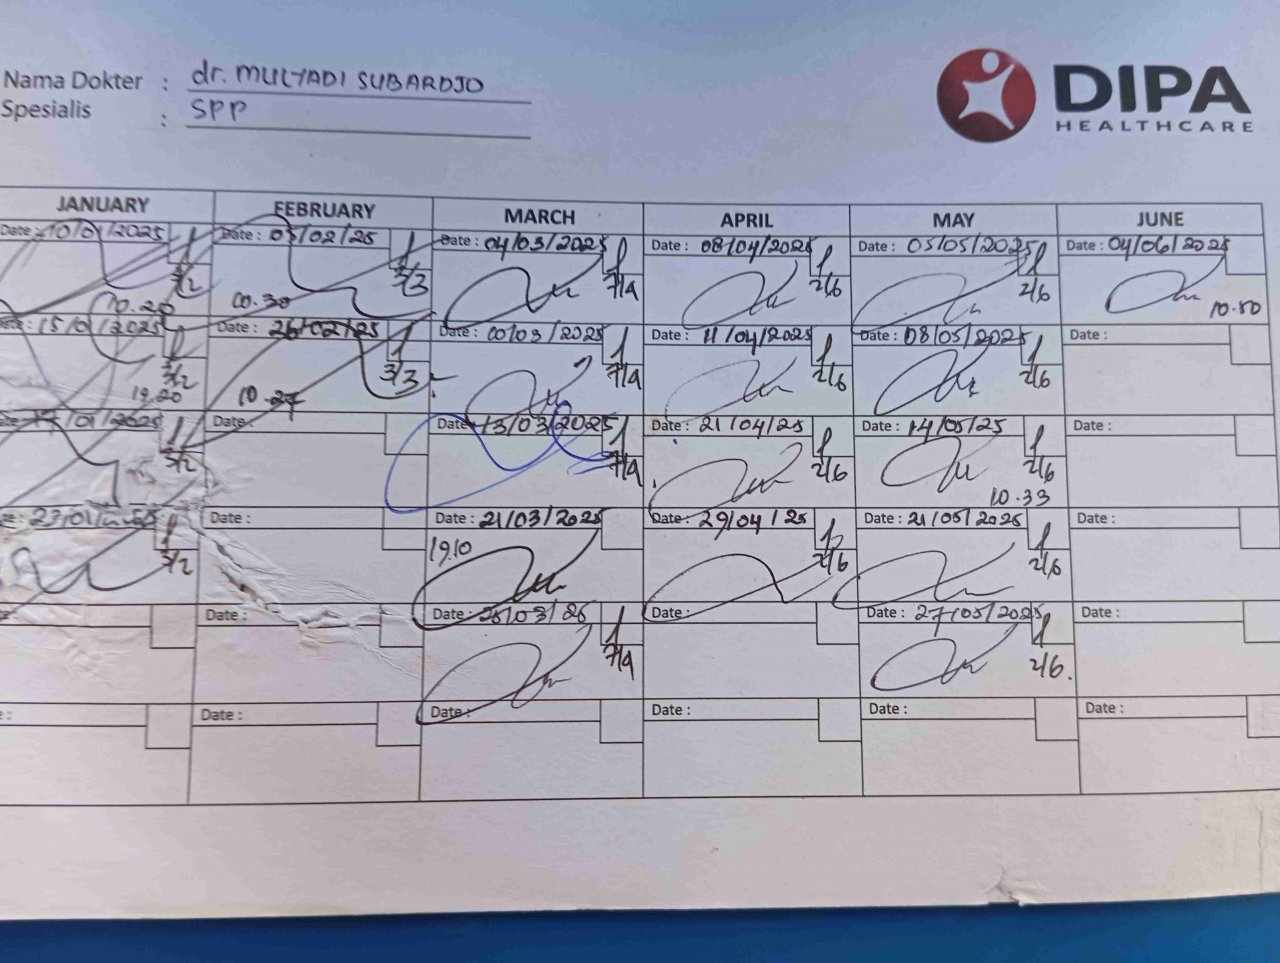 Nama Dokter : dr. MULYADI SUBARDJO
Spesialis : SPP
DIPA
HEALTHCARE
JANUARY FEBRUARY MARCH APRIL MAY JUNE
Date : 10/01/2025 3/2 Date : 03/02/25 3/3 Date : 04/03/2025 7/4 Date : 08/04/2025 2/6 Date : 05/05/2025 2/6 Date : 04/06/2025
10.20 10.30 10.50
Date : 15/01/2025 3/2 Date : 26/02/25 3/3 Date : /03/2025 7/4 Date : 11/04/2025 2/6 Date : 08/05/2025 2/6 Date :
19.20 10.27
Date : /01/2025 3/2 Date : Date : 13/03/2025 7/4 Date : 21/04/25 2/6 Date : 14/05/25 2/6 Date :
10.33
23/01/2025 3/2 Date : Date : 21/03/2025 Date : 29/04/25 2/6 Date : 21/05/2025 2/6 Date :
19.10
Date : Date : /03/25 7/4 Date : Date : 27/05/2025 2/6. Date :
Date : Date : Date : Date : Date :